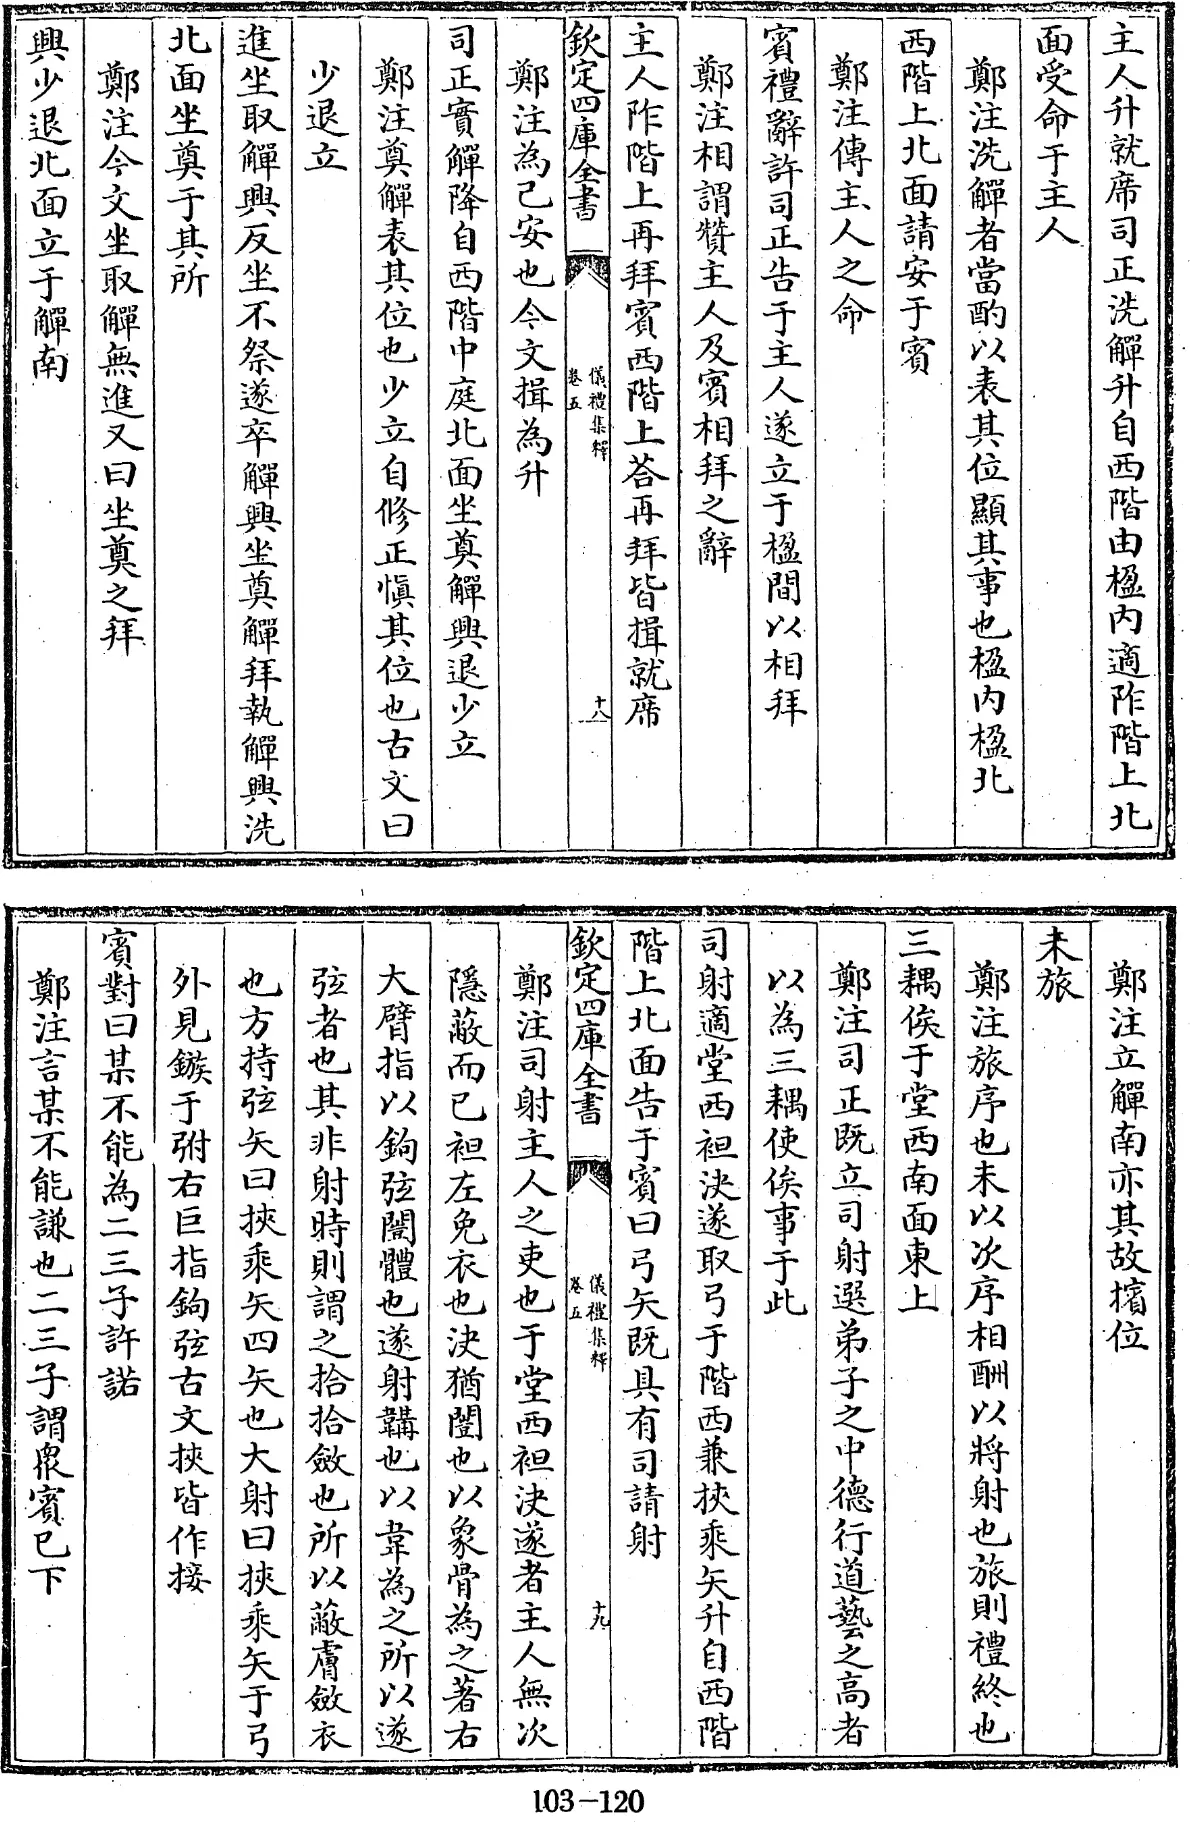 主人升就席司正洗觶升自西階由楹内適阼階上北
面受命于主人
鄭注洗觶者當酌以表其位顯其事也楹内楹北
西階上北面請安于賓
鄭注傳主人之命
賓禮辭許司正告于主人遂立于楹間以相拜
鄭注相謂贊主人及賓相拜之辭
主人阼階上再拜賓西階上荅再拜皆揖就席
欽定四庫全書
儀禮集釋
卷五
十八
鄭注為已安也今文揖為升
司正實觶降自西階中庭北面坐奠觶興退少立
鄭注奠觶表其位也少立自修正慎其位也古文曰
少退立
進坐取觶興反坐不祭遂卒觶興坐奠觶拜執觶興洗
北面坐奠于其所
鄭注今文坐取觶無進又曰坐奠之拜
興少退北面立于觶南
鄭注立觶南亦其故擯位
未旅
鄭注旅序也未以次序相酬以將射也旅則禮終也
三耦俟于堂西南面東上
鄭注司正既立司射選弟子之中德行道藝之高者
以為三耦使俟事于此
司射適堂西袒決遂取弓于階西兼挾乘矢升自西階
階上北面告于賓曰弓矢既具有司請射
欽定四庫全書
儀禮集釋
卷五
十九
鄭注司射主人之吏也于堂西袒決遂者主人無次
隱蔽而已袒左免衣也決猶闓也以象骨為之著右
大臂指以鉤弦闓體也遂射韝也以韋為之所以遂
弦者也其非射時則謂之拾拾斂也所以蔽膚斂衣
也方持弦矢曰挾乘矢四矢也大射曰挾乘矢于弓
外見鏃于弣右巨指鉤弦古文挾皆作接
賓對曰某不能為二三子許諾
鄭注言某不能謙也二三子謂衆賓已下
103-120